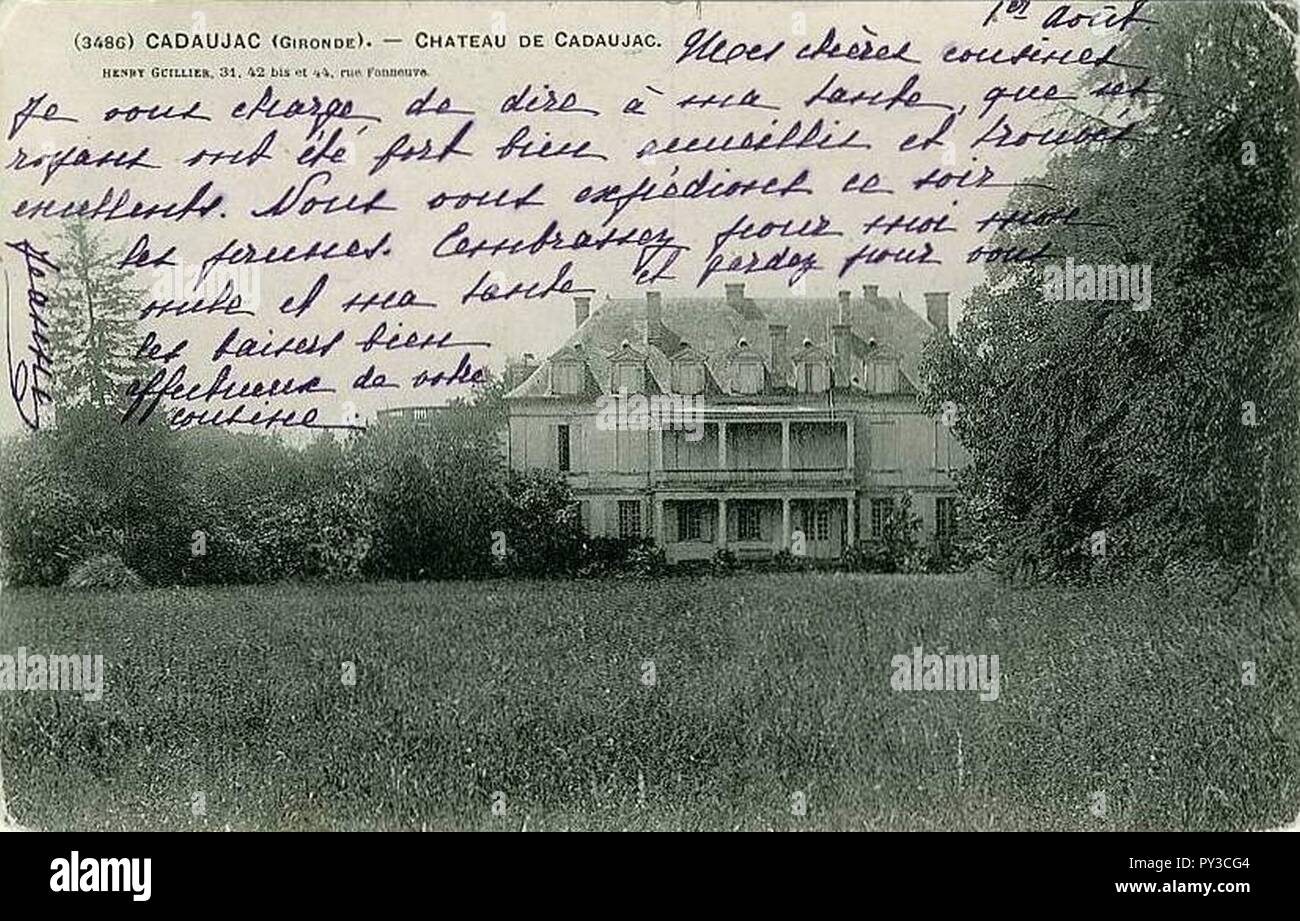 1er Août.
(3486) CADAUJAC (GIRONDE). — CHATEAU DE CADAUJAC.
HENRY GUILLIER, 31, 42 bis et 44, rue Fonneuve.
Mes chères cousines
Je vous charge de dire à ma tante, que ses
royans ont été fort bien accueillis et trouvés
excellents. Nous vous expédions ce soir
les prunes. Embrassez pour moi mon
oncle et ma tante et gardez pour vous
les baisers bien
affectueux de votre
cousine.
alamy
a
alamy stock photo
PY3CG4
www.alamy.com